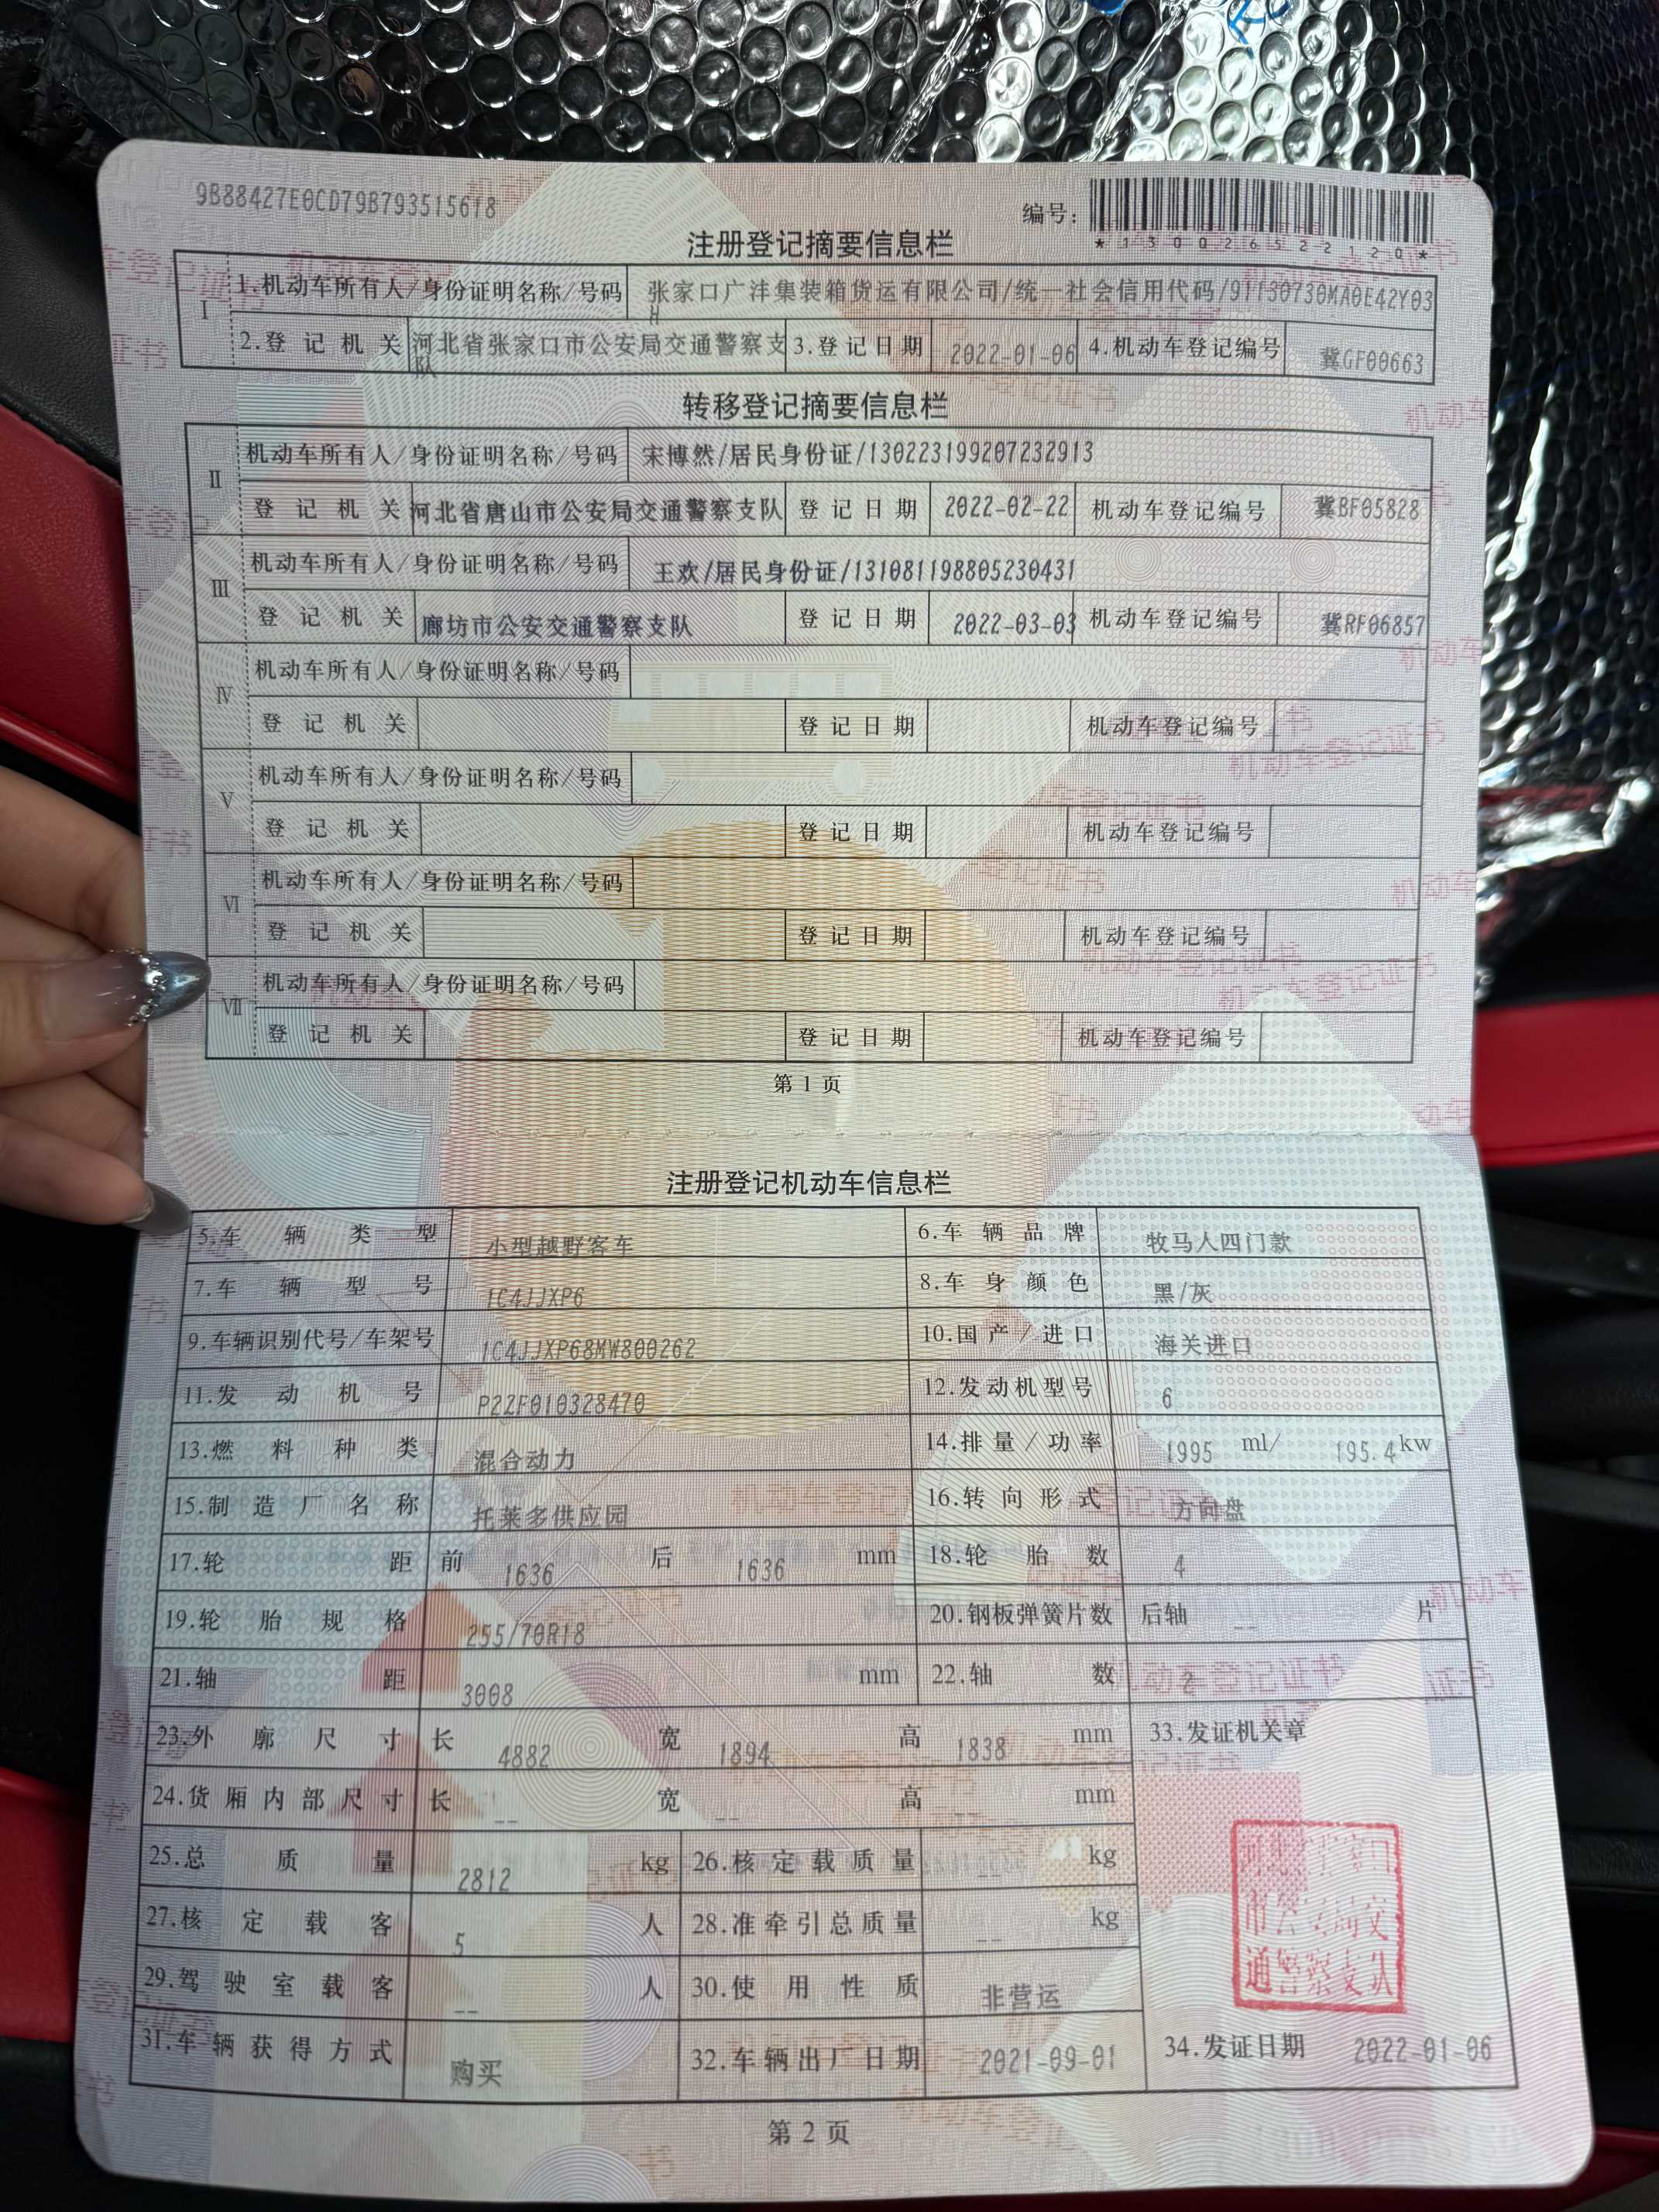 9B88427E0CD79B79351561f8
编号:
*130026522120*
注册登记摘要信息栏
I 1.机动车所有人/身份证明名称/号码 张家口广沣集装箱货运有限公司/统一社会信用代码/91130730MA0E42Y03
H
2.登记机关 河北省张家口市公安局交通警察支 3.登记日期 2022-01-06 4.机动车登记编号 冀GF00663
队
转移登记摘要信息栏
II 机动车所有人/身份证明名称/号码 宋博然/居民身份证/130223199207232913
登记机关 河北省唐山市公安局交通警察支队 登记日期 2022-02-22 机动车登记编号 冀BF05828
III 机动车所有人/身份证明名称/号码 王欢/居民身份证/131081198805230431
登记机关 廊坊市公安交通警察支队 登记日期 2022-03-03 机动车登记编号 冀RF06857
IV 机动车所有人/身份证明名称/号码
登记机关 登记日期 机动车登记编号
V 机动车所有人/身份证明名称/号码
登记机关 登记日期 机动车登记编号
VI 机动车所有人/身份证明名称/号码
登记机关 登记日期 机动车登记编号
VII 机动车所有人/身份证明名称/号码
登记机关 登记日期 机动车登记编号
第 1 页
注册登记机动车信息栏
5.车辆类型 小型越野客车 6.车辆品牌 牧马人四门款
7.车辆型号 1C4JJXP6 8.车身颜色 黑/灰
9.车辆识别代号/车架号 1C4JJXP68MW800262 10.国产/进口 海关进口
11.发动机号 P22F010328470 12.发动机型号 6
13.燃料种类 混合动力 14.排量/功率 1995 ml/ 195.4 kw
15.制造厂名称 托莱多供应园 16.转向形式 方向盘
17.轮距 前 1636 后 1636 mm 18.轮胎数 4
19.轮胎规格 255/70R18 20.钢板弹簧片数 后轴 -- 片
21.轴距 3008 mm 22.轴数 2
23.外廓尺寸 长 4882 宽 1894 高 1838 mm 33.发证机关章
24.货厢内部尺寸 长 -- 宽 -- 高 mm
25.总质量 2812 kg 26.核定载质量 -- kg
27.核定载客 5 人 28.准牵引总质量 -- kg
29.驾驶室载客 -- 人 30.使用性质 非营运
31.车辆获得方式 购买 32.车辆出厂日期 2021-09-01 34.发证日期 2022-01-06
通警察支队
第 2 页